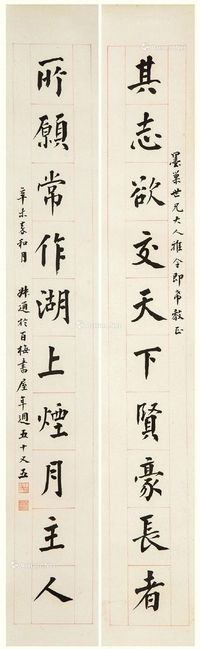 其志欲交天下賢豪長者
世兄大人雅令即希教正
所願常作湖上煙月主人
辛未春和月
於百梅書屋年週五十又五